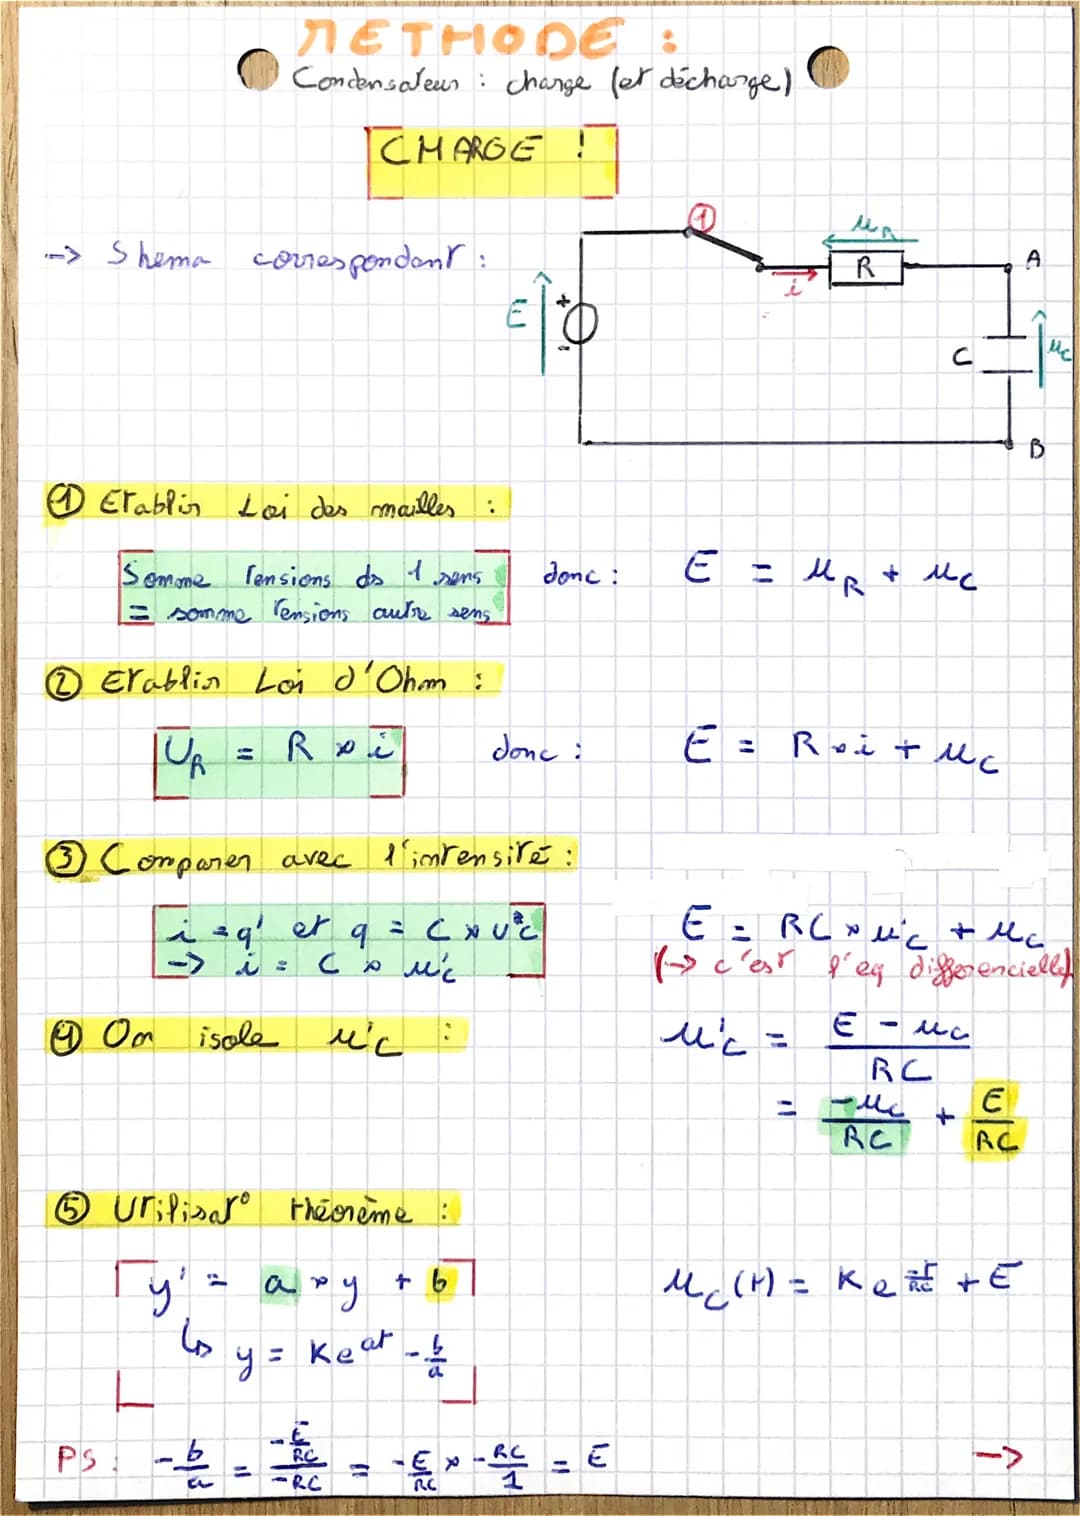 METHODE :
Condensateur : charge (et décharge)
CHARGE !
-> Shema correspondant :
1
uR
R
i
A
E
+
-
C
uc
B
① Etablir Loi des mailles :
Somme Tensions ds 1 sens
= somme Tensions autre sens
donc : E = uR + uc
② Etablir Loi d'Ohm :
UR = R × i donc : E = R × i + uc
③ Comparer avec l'intensité :
i = q' et q = C × Uc
-> i = C × u'c
E = RC × u'c + uc
(-> c'est l'eq differencielle)
④ On isole u'c :
u'c = E - uc / RC
= -uc / RC + E / RC
⑤ Utilisat° théorème :
y' = a × y + b
↳ y = Ke^at - b/a
uc(t) = Ke^-t/RC + E
PS : -b/a = -E/RC / -RC = -E/RC × -RC/1 = E
->